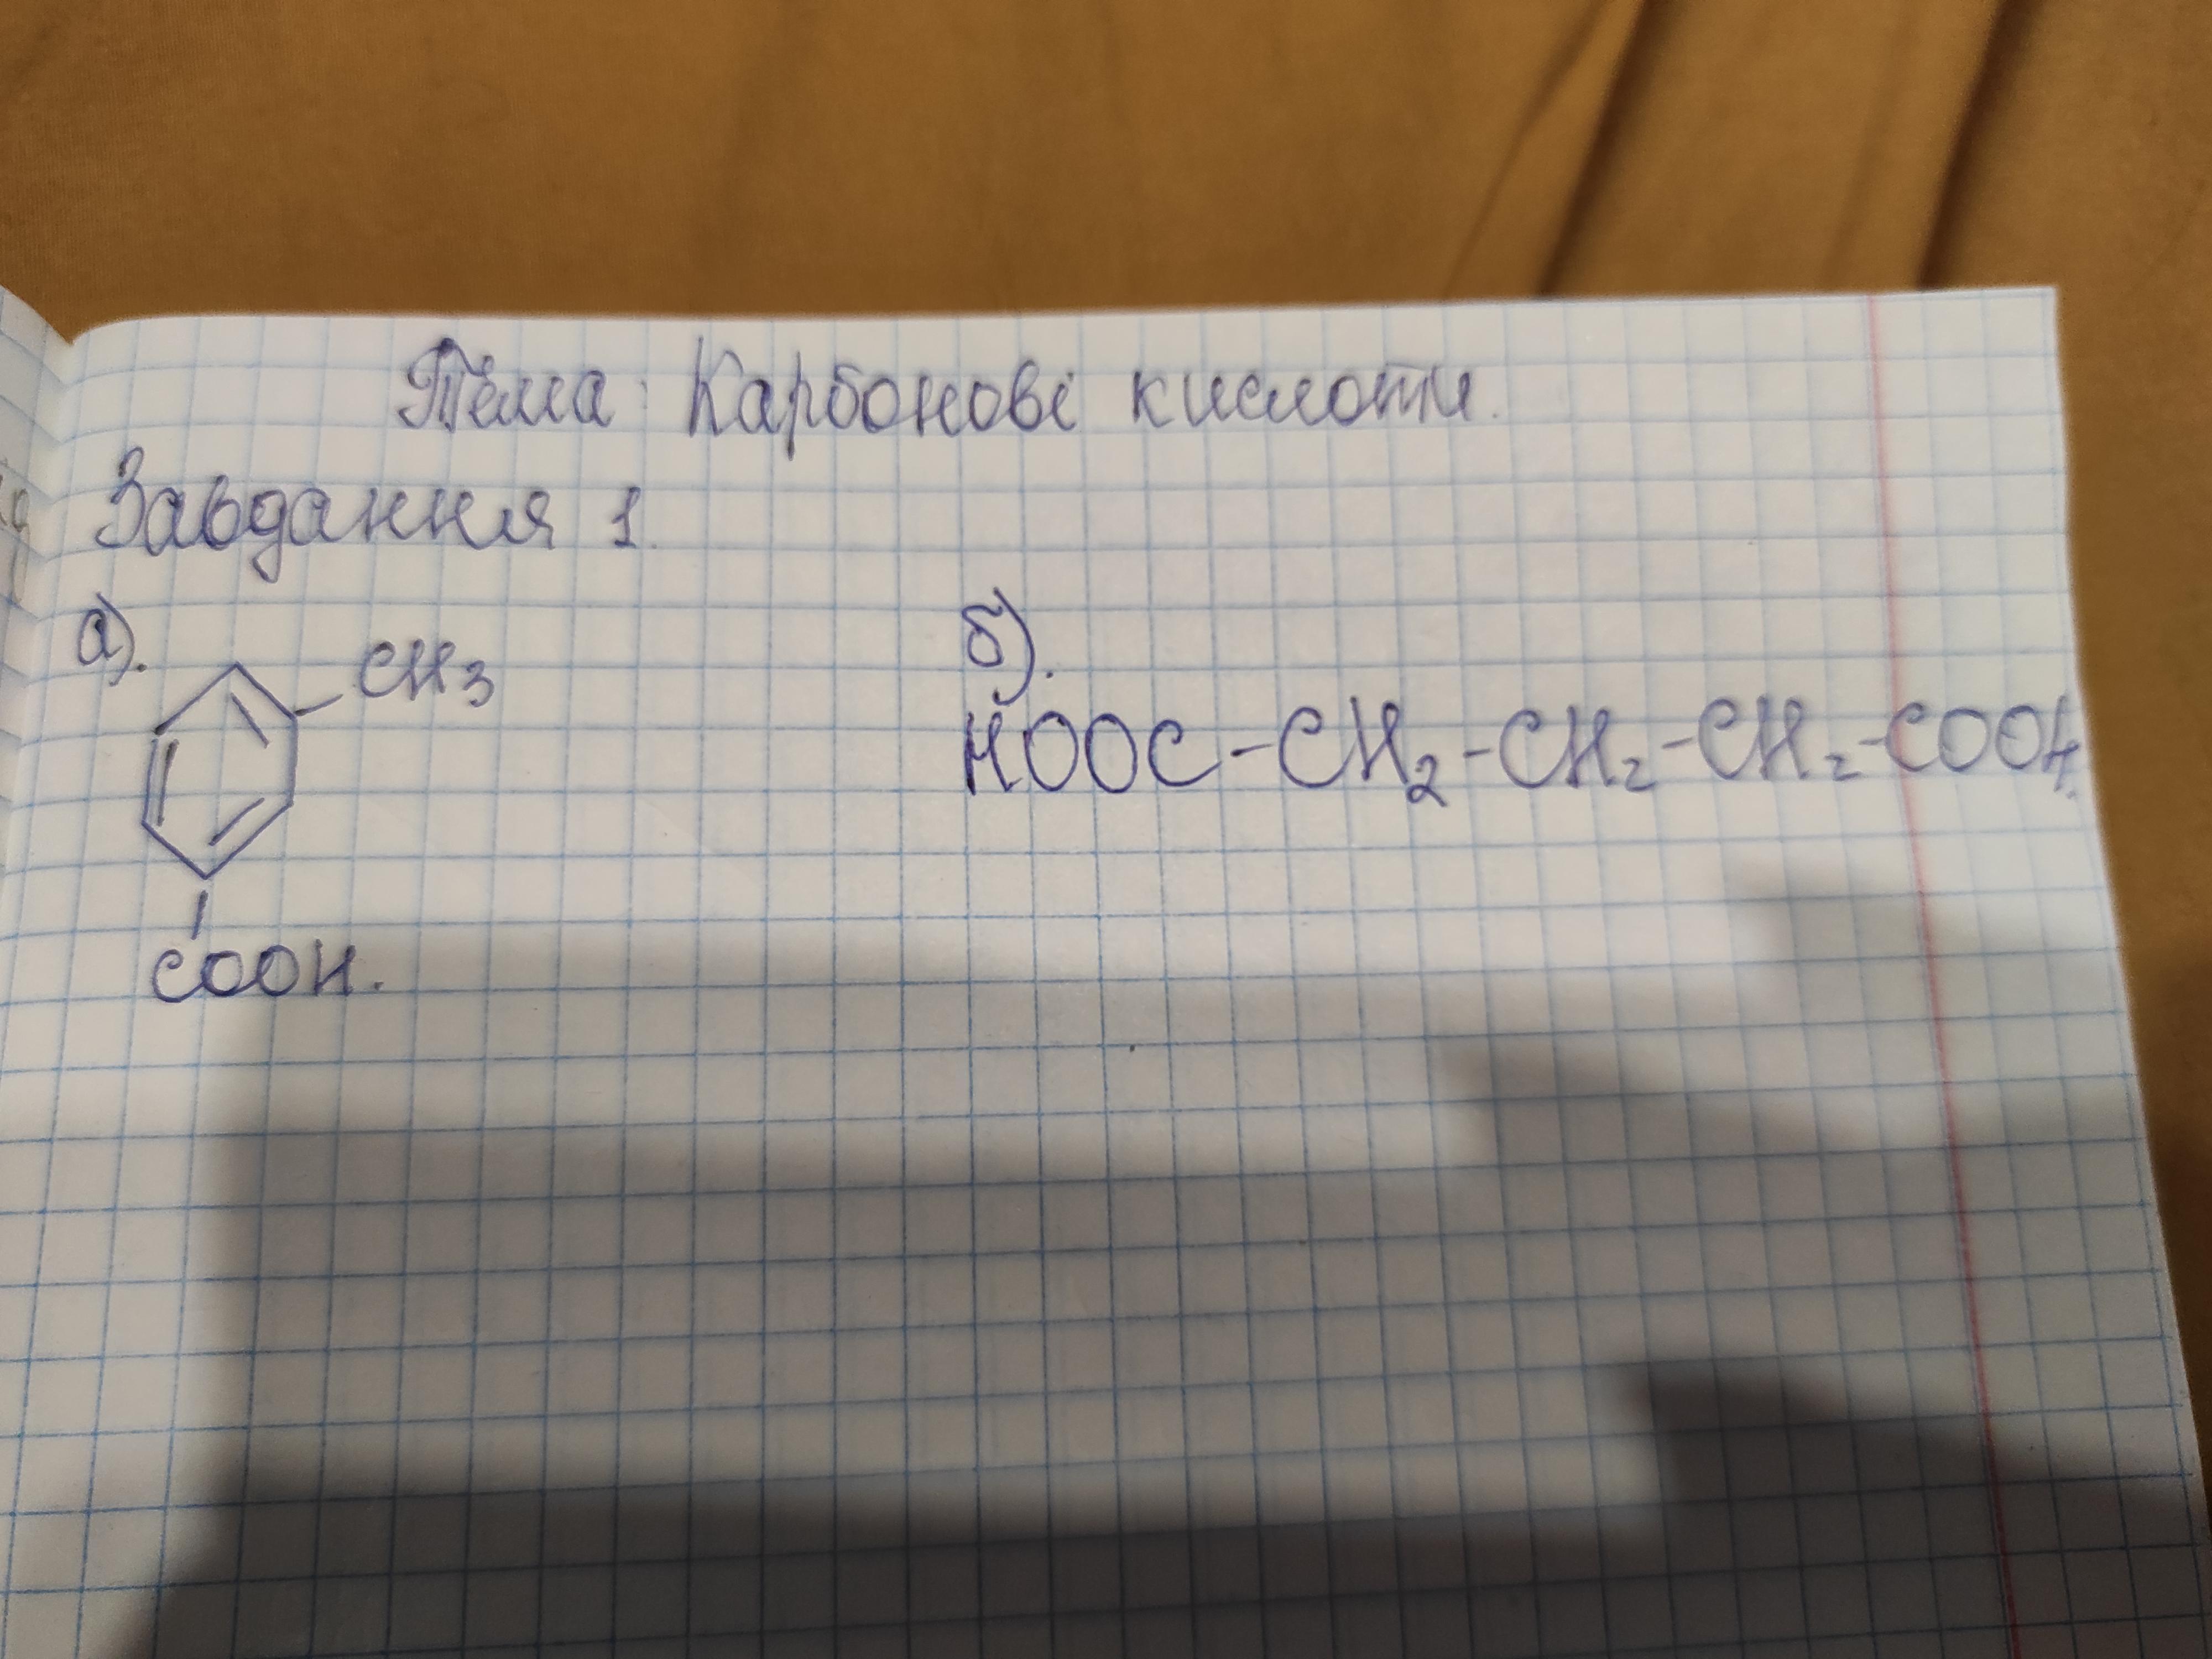 Тема: Карбонові кислоти.
Завдання 1.
а).
CH3
COOH.
б).
HOOC-CH2-CH2-CH2-COOH.